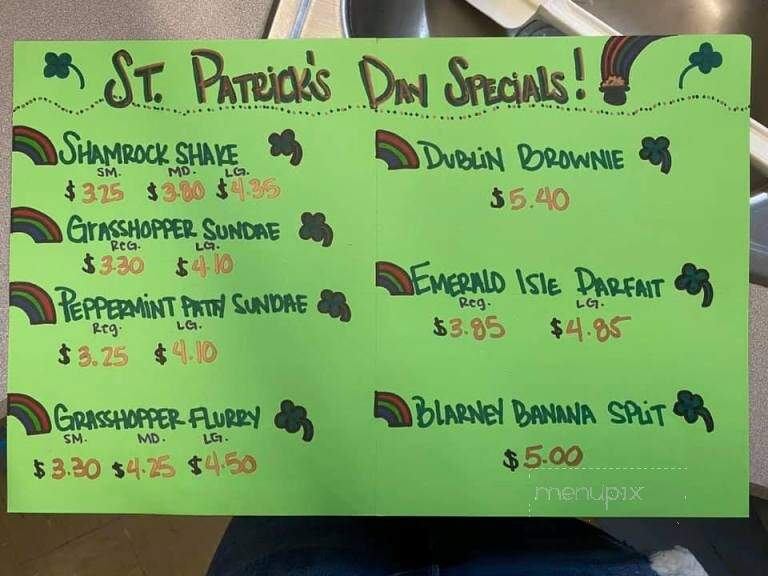 ST. PATRICK'S DAY SPECIALS!
SHAMROCK SHAKE
SM. MD. LG.
$3.25 $3.80 $4.35
GRASSHOPPER SUNDAE
REG. LG.
$3.30 $4.10
PEPPERMINT PATTY SUNDAE
REG. LG.
$3.25 $4.10
GRASSHOPPER FLURRY
SM. MD. LG.
$3.30 $4.25 $4.50
DUBLIN BROWNIE
$5.40
EMERALD ISLE PARFAIT
REG. LG.
$3.85 $4.85
BLARNEY BANANA SPLIT
$5.00
menupix